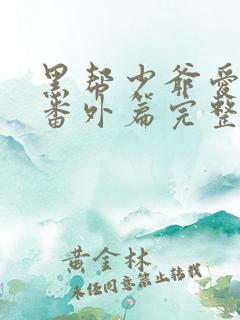 黑帮少爷爱
番外篇完整
黄金林
未经同意禁止转载